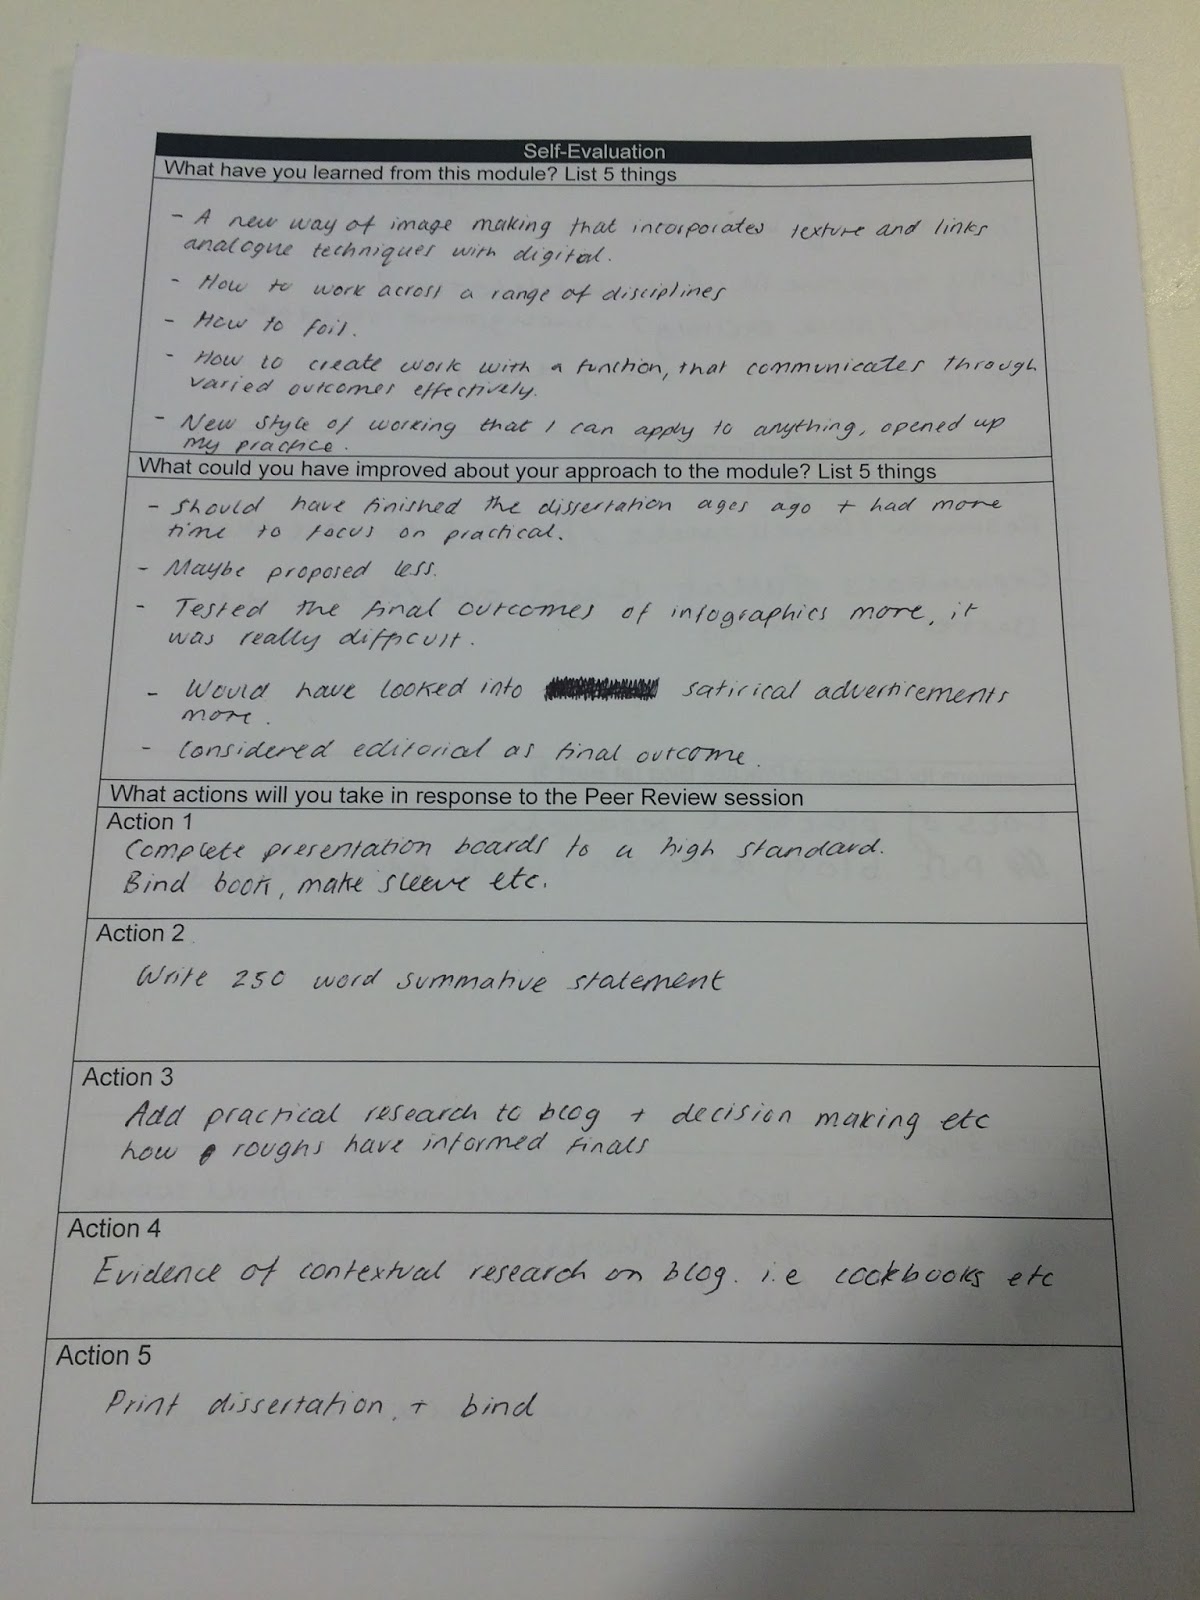 Self-Evaluation
What have you learned from this module? List 5 things
- A new way of image making that incorporates texture and links
analogue techniques with digital.
- How to work across a range of disciplines
- How to foil.
- How to create work with a function, that communicates through
varied outcomes effectively.
- New style of working that I can apply to anything, opened up
my practice.
What could you have improved about your approach to the module? List 5 things
- Should have finished the dissertation ages ago + had more
time to focus on practical.
- Maybe proposed less.
- Tested the final outcomes of infographics more, it
was really difficult.
- Would have looked into satirical advertisements
more.
- Considered editorial as final outcome.
What actions will you take in response to the Peer Review session
Action 1
Complete presentation boards to a high standard.
Bind book, make sleeve etc.
Action 2
Write 250 word summative statement
Action 3
Add practical research to blog + decision making etc
how roughs have informed finals
Action 4
Evidence of contextual research on blog. i.e cookbooks etc
Action 5
Print dissertation + bind